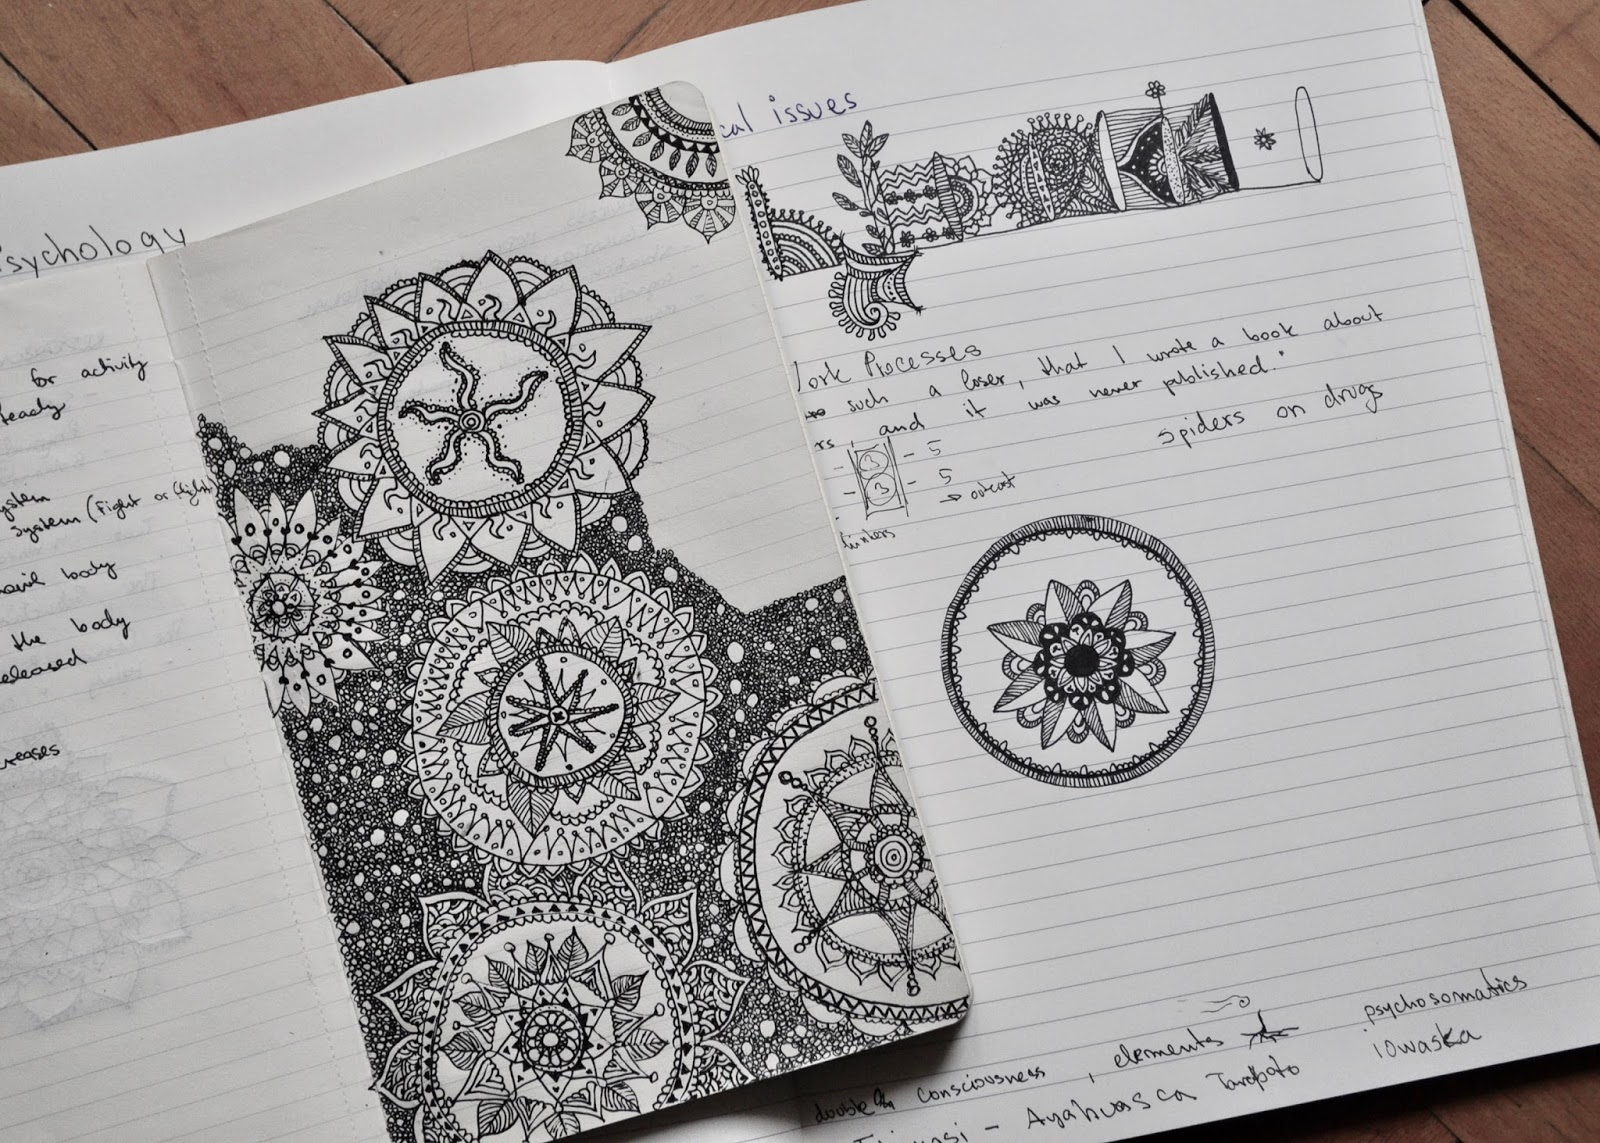 Psychology
for activity
ready
system
system (Fight or flight)
body
the body
released
creases
cal issues
Work Processes
such a loser, that I wrote a book about
rs, and it was never published."
spiders on drugs
- 3 - 5
- 3 - 5
→ outcast
thinkers
double consciousness, elements
psychosomatics
iowaska
- Ayahuasca Tarapoto